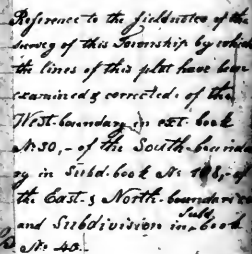 Reference to the fieldnotes of the
survey of this Township by which
the lines of this plat have been
examined & corrected. of the
West-boundary in ext. book
No 30,- of the South-bounda
ry in Subd. book No 108,- of
the East- & North- boundaries
and Subdivision in Subd. book
No 40.-